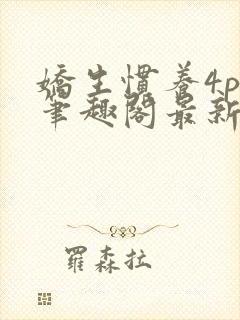 嬌生慣養4p
筆趣閣最新
羅森拉